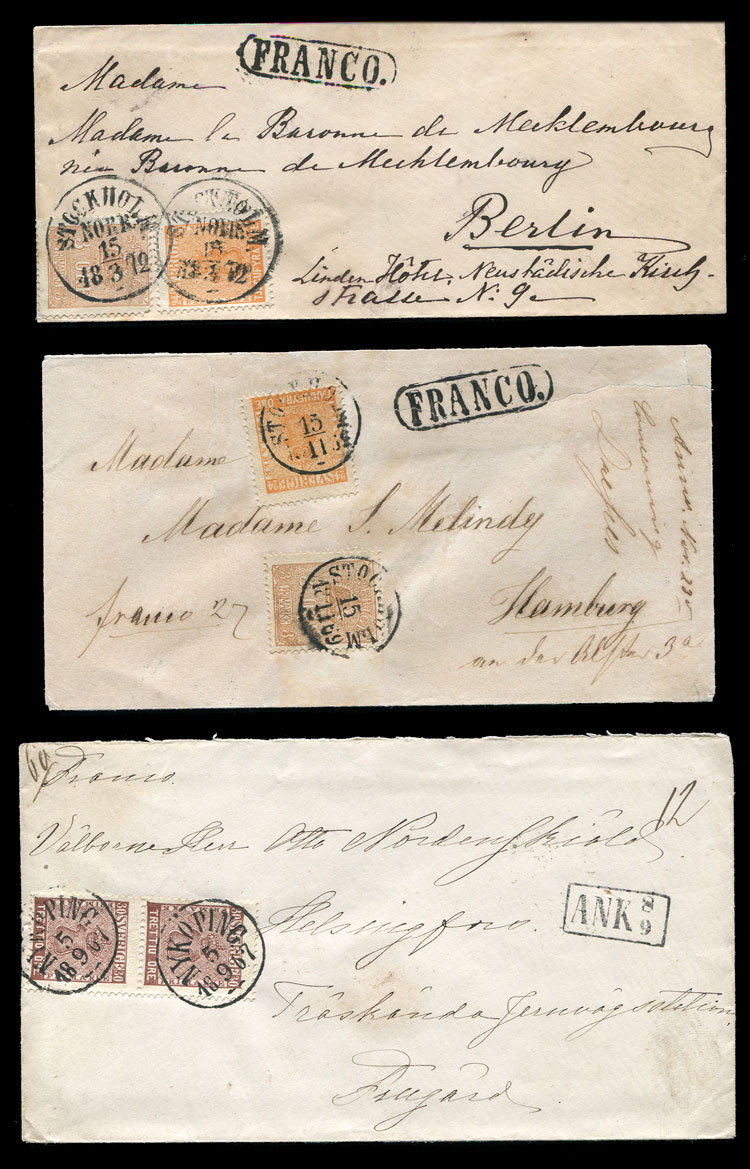 FRANCO.
Madame
Madame la Baronne de Mecklembourg
née Baronne de Mecklembourg
Berlin
Linden Hôtel, Neustädische Kirch-
strasse N: 9
STOCKHOLM
NORR
15
18 3 72
STOCKHOLM
NORR
15
18 3 72
FRANCO.
STOCKHOLM
15
11
TJUGUFYRA ÖRE
24 SVERIGE 24
Madame
Madame S. Melindy
franco 27
STOCKHOLM
15
11
Hamburg
an der Alster 3a
Franco
12
Välborne Herr Otto Nordenskiöld
NYKÖPING
5
18 9 67
NYKÖPING
5
18 9 67
30 SVERIGE 30
TRETTIO ÖRE
TRETTIO ÖRE
ANK 8
9
Helsingfors.
Träskända Jernvägsstation
Frugård